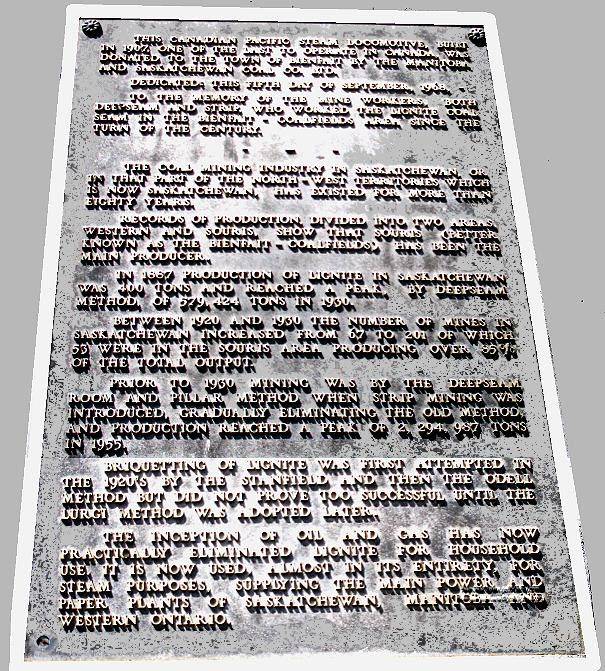 THIS CANADIAN PACIFIC STEAM LOCOMOTIVE, BUILT
IN 1907, ONE OF THE LAST TO OPERATE IN CANADA WAS
DONATED TO THE TOWN OF BIENFAIT BY THE MANITOBA
AND SASKATCHEWAN COAL CO. LTD.
DEDICATED THIS FIFTH DAY OF SEPTEMBER, 1968,
TO THE MEMORY OF THE MINE WORKERS, BOTH
DEEPSEAM AND STRIP, WHO WORKED THE LIGNITE COAL
SEAM IN THE BIENFAIT - COALFIELDS AREA, SINCE THE
TURN OF THE CENTURY.
THE COAL MINING INDUSTRY IN SASKATCHEWAN, OR
IN THAT PART OF THE NORTH-WEST TERRITORIES WHICH
IS NOW SASKATCHEWAN HAS EXISTED FOR MORE THAN
EIGHTY YEARS.
RECORDS OF PRODUCTION DIVIDED INTO TWO AREAS,
WESTERN AND SOURIS, SHOW THAT SOURIS (BETTER
KNOWN AS THE BIENFAIT - COALFIELDS), HAS BEEN THE
MAIN PRODUCER.
IN 1887 PRODUCTION OF LIGNITE IN SASKATCHEWAN
WAS 400 TONS AND REACHED A PEAK, BY DEEPSEAM
METHOD, OF 579,424 TONS IN 1930.
BETWEEN 1920 AND 1930 THE NUMBER OF MINES IN
SASKATCHEWAN INCREASED FROM 67 TO 201 OF WHICH
53 WERE IN THE SOURIS AREA PRODUCING OVER 95%
OF THE TOTAL OUTPUT.
PRIOR TO 1930 MINING WAS BY THE DEEPSEAM
ROOM AND PILLAR METHOD WHEN STRIP MINING WAS
INTRODUCED, GRADUALLY ELIMINATING THE OLD METHOD,
AND PRODUCTION REACHED A PEAK OF 2,294,987 TONS
IN 1955.
BRIQUETTING OF LIGNITE WAS FIRST ATTEMPTED IN
THE 1920'S BY THE STANFIELD AND THEN THE ODELL
METHOD BUT DID NOT PROVE TOO SUCCESSFUL UNTIL THE
LURGI METHOD WAS ADOPTED LATER.
THE INCEPTION OF OIL AND GAS HAS NOW
PRACTICALLY ELIMINATED LIGNITE FOR HOUSEHOLD
USE, IT IS NOW USED, ALMOST IN ITS ENTIRETY, FOR
STEAM PURPOSES, SUPPLYING THE MAIN POWER AND
PAPER PLANTS OF SASKATCHEWAN, MANITOBA AND
WESTERN ONTARIO.